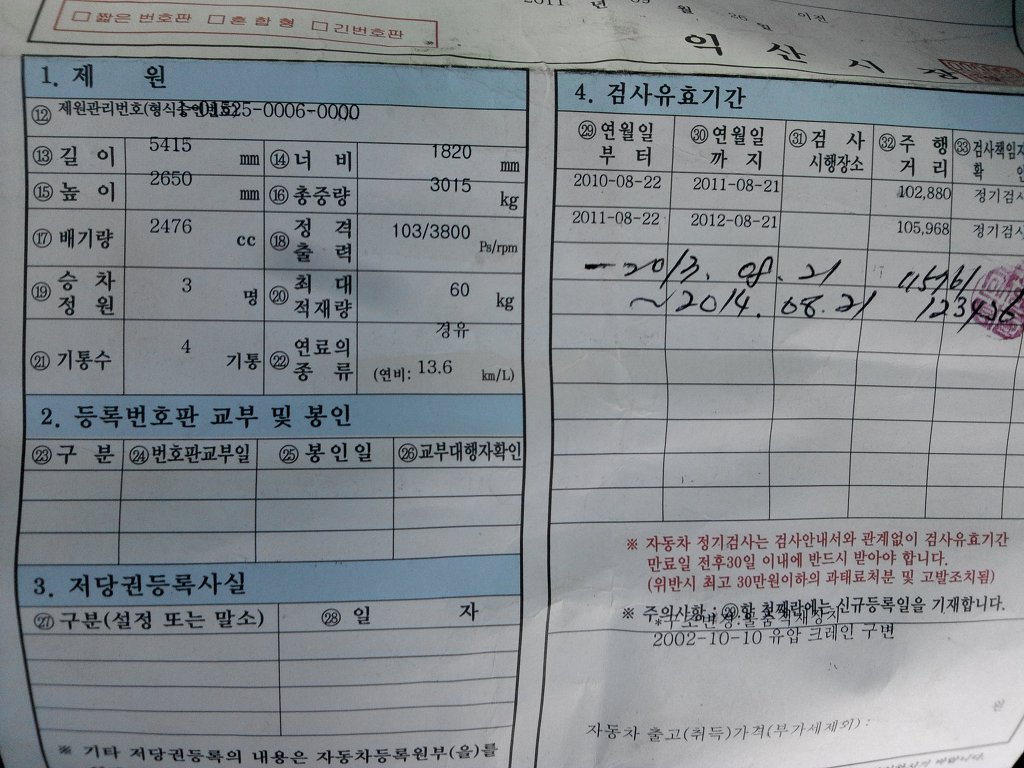 2011 년 09 월 26 일 이전
□ 짧은 번호판 □ 혼합형 □ 긴번호판
익 산 시 장
1. 제 원
⑫ 제원관리번호(형식승인번호) -0006-0000
⑬ 길 이 5415 mm ⑭ 너 비 1820 mm
⑮ 높 이 2650 mm ⑯ 총중량 3015 kg
⑰ 배기량 2476 cc ⑱ 정 격 출 력 103/3800 Ps/rpm
⑲ 승 차 정 원 3 명 ⑳ 최 대 적재량 60 kg
㉑ 기통수 4 기통 ㉒ 연료의 종 류 경유 (연비: 13.6 km/L)
2. 등록번호판 교부 및 봉인
㉓ 구 분 ㉔ 번호판교부일 ㉕ 봉인일 ㉖ 교부대행자확인
3. 저당권등록사실
㉗ 구분(설정 또는 말소) ㉘ 일 자
※ 기타 저당권등록의 내용은 자동차등록원부(을)를
4. 검사유효기간
㉙ 연월일 부 터 ㉚ 연월일 까 지 ㉛ 검 사 시행장소 ㉜ 주 행 거 리 ㉝ 검사책임자 확 인
2010-08-22 2011-08-21 102,880 정기검사
2011-08-22 2012-08-21 105,968 정기검사
-2013. 08. 21
~2014. 08. 21
※ 자동차 정기검사는 검사안내서와 관계없이 검사유효기간
만료일 전후30일 이내에 반드시 받아야 합니다.
(위반시 최고 30만원이하의 과태료처분 및 고발조치됨)
※ 주의사항 : ㉙항 첫째란에는 신규등록일을 기재합니다.
2002-10-10 유압 크레인 구변
원
자동차 출고(취득)가격(부가세제외) :